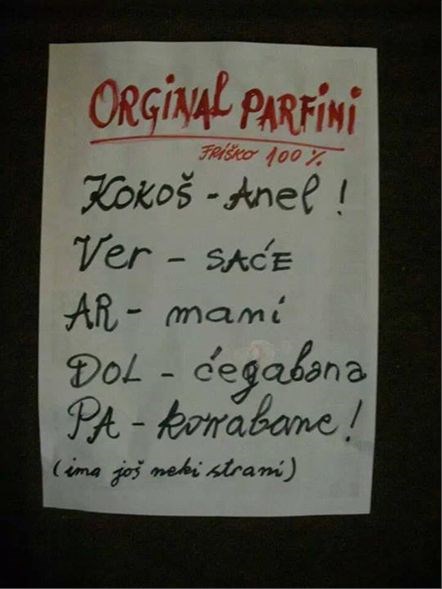 ORGINAL PARFINI
FRIŠKO 100%
KOKOŠ - Anel !
Ver - SAĆE
AR - mani
DOL - ćegabana
PA - korrabane!
(ima još neki strani)